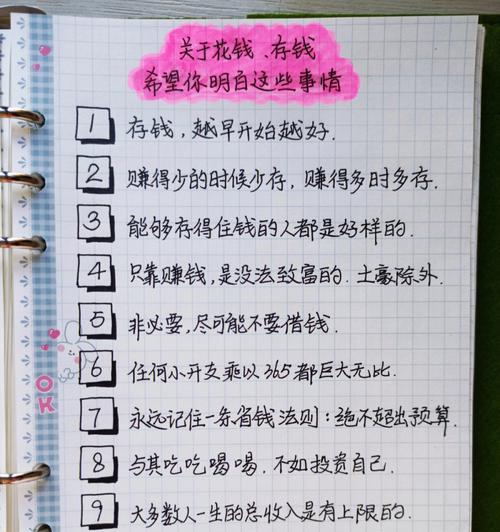 关于花钱、存钱
希望你明白这些事情
1 存钱,越早开始越好.
2 赚得少的时候少存,赚得多时多存.
3 能够存得住钱的人都是好样的.
4 只靠赚钱,是没法致富的.土豪除外.
5 非必要,尽可能不要借钱.
6 任何小开支乘以365都巨大无比.
OK
7 永远记住一条省钱法则:绝不超出预算.
8 与其吃吃喝喝.不如投资自己.
9 大多数人一生的总收入是有上限的.